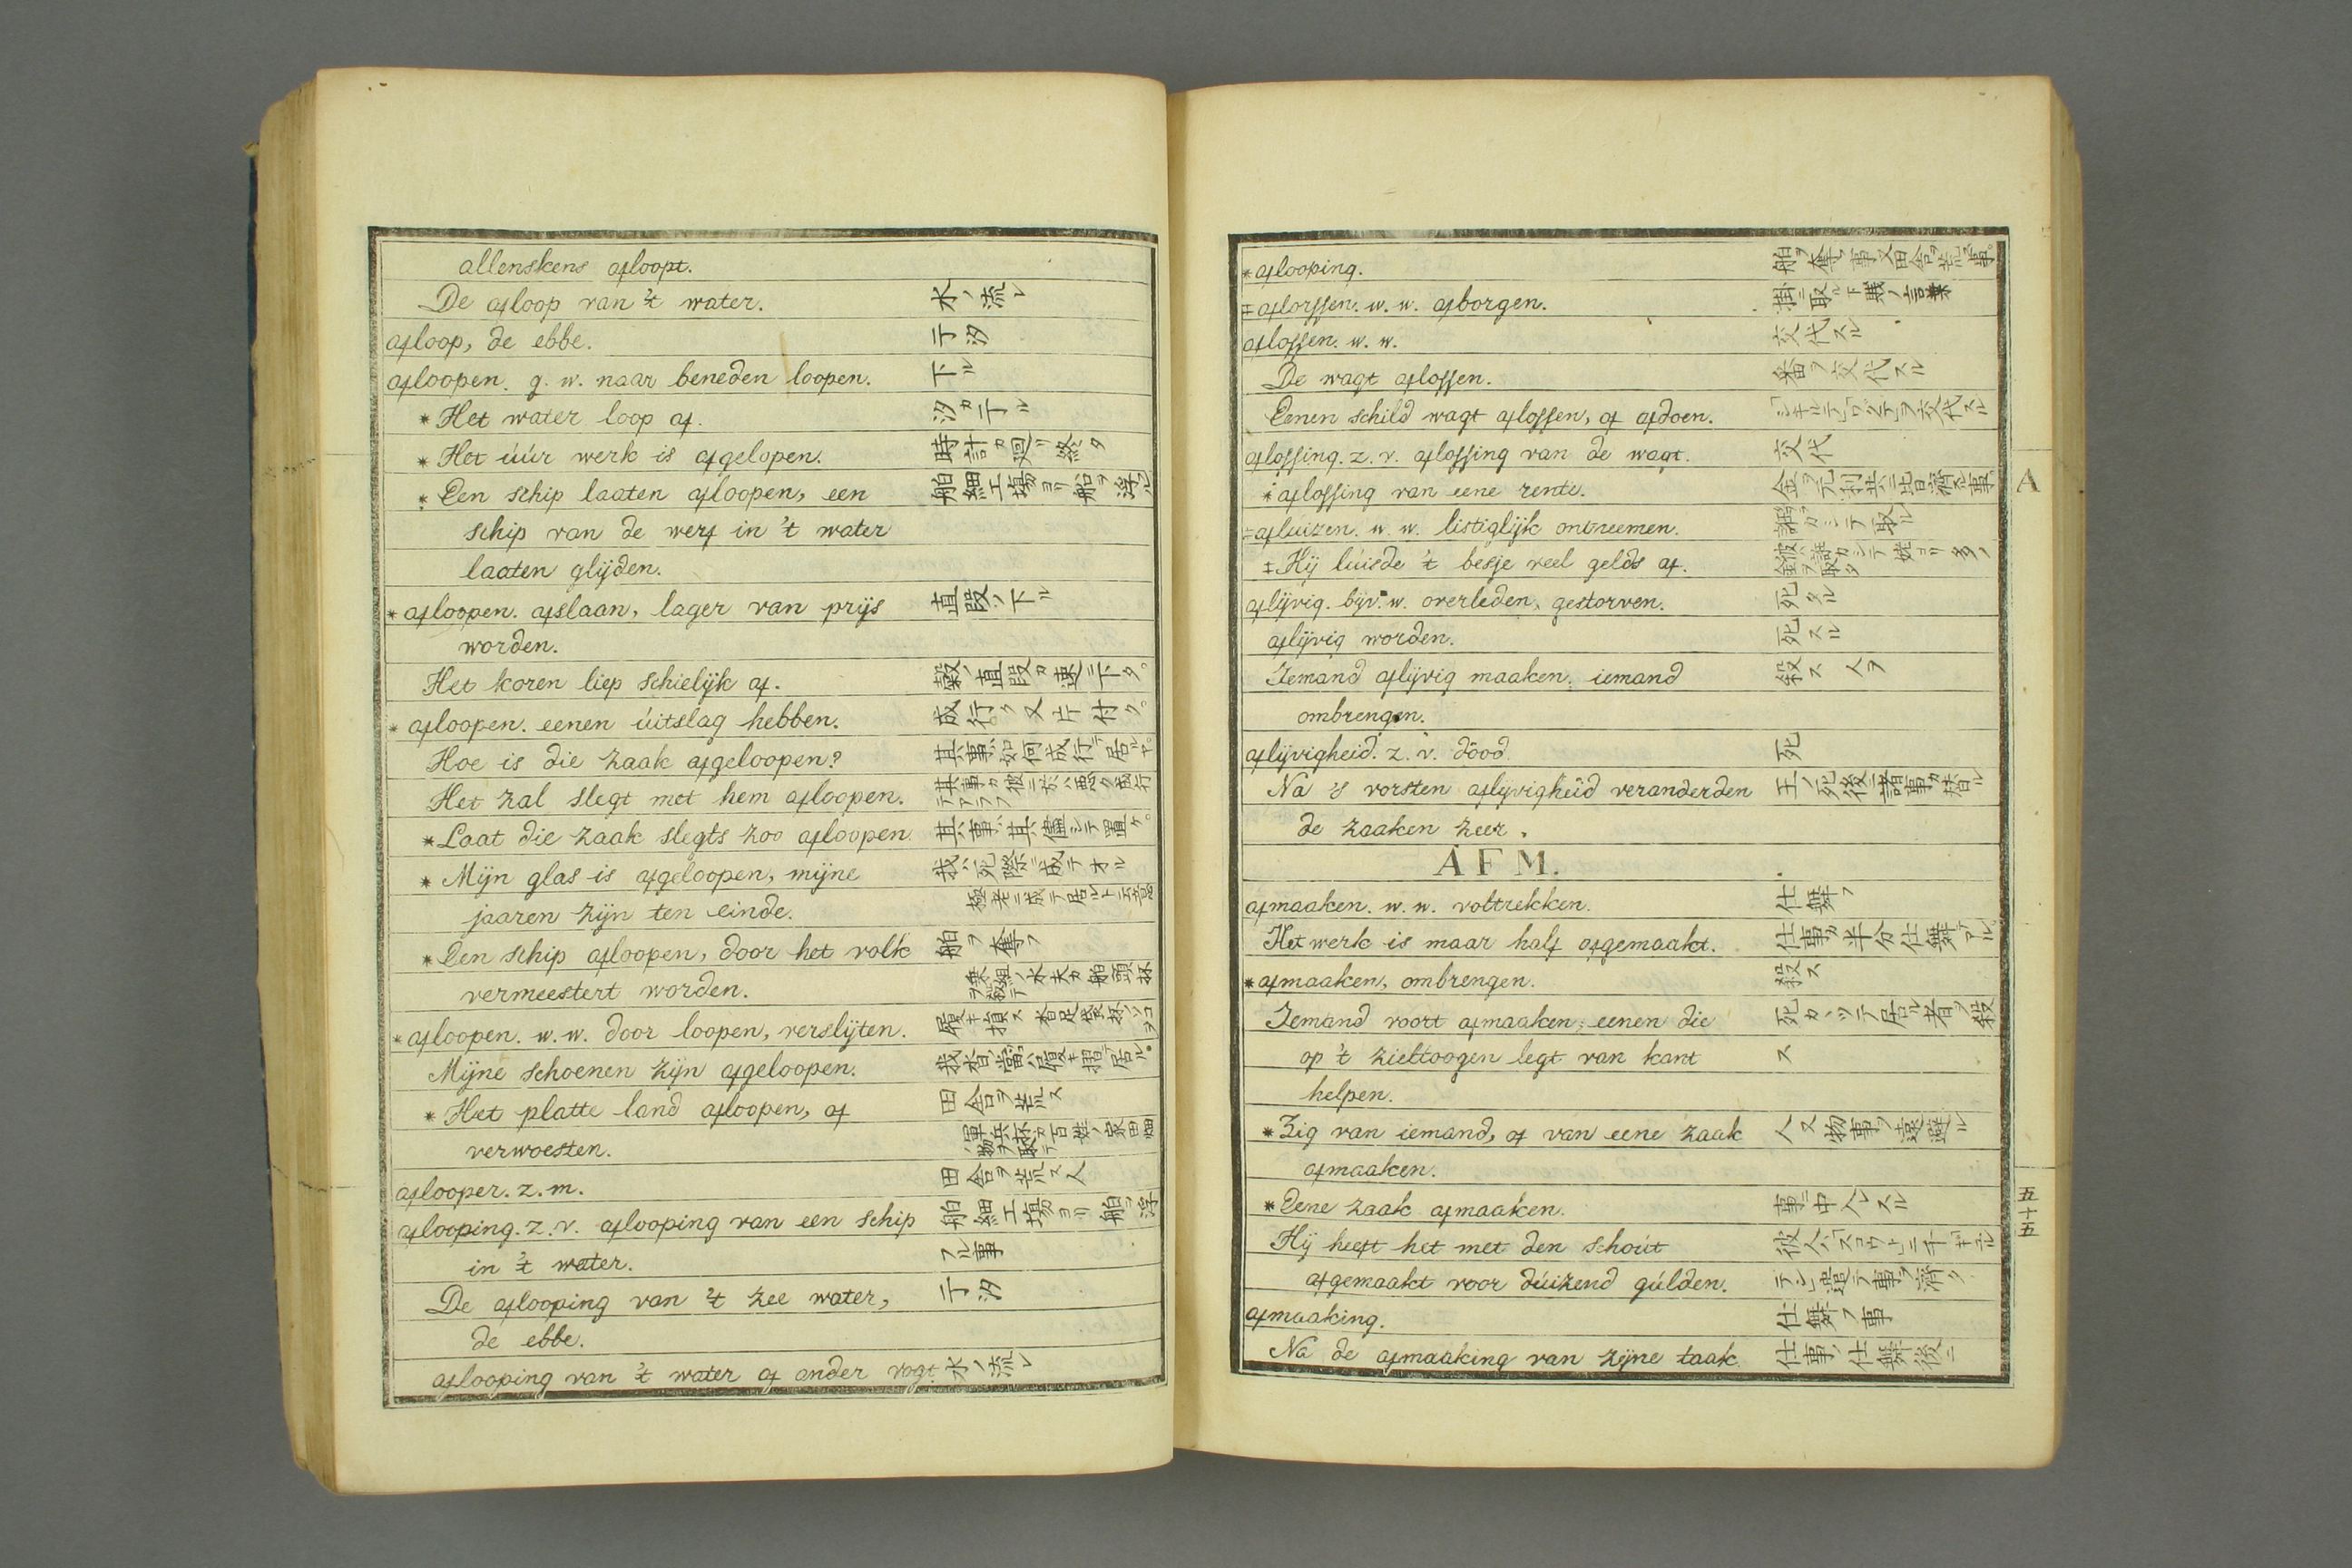 allenskens afloopt.
De afloop van 't water. 水ノ流レ
afloop, de ebbe. 干汐
afloopen. g. w. naar beneden loopen. 下ル
* Het water loop af. 汐カ干ル
* Het úúr werk is afgelopen. 時計カ廻リ終タ
* Een schip laaten afloopen, een 舶細工場ヨリ船ヲ浮ル
schip van de werf in 't water
laaten glijden.
* afloopen. afslaan, lager van prijs 直段ノ下ル
worden.
Het koren liep schielijk af. 穀ノ直段カ速ニ下タ。
* afloopen. eenen úitslag hebben. 成行ク又片付ク。
Hoe is die zaak afgeloopen? 其事ハ如何成行テ居ルヤ。
Het zal slegt met hem afloopen. 其事カ彼ニ於ハ悪ク成行テアラフ
* Laat die zaak slegts zoo afloopen. 其事ハ其儘シテ置ケ。
* Mijn glas is afgeloopen, mijne 我ハ死際ニ成テオル
jaaren zijn ten einde. 極老ニ成テ居ルト云意
* Een schip afloopen, door het volk 舶ヲ奪フ
vermeestert worden. 乗組ノ水夫カ舶頭杯ヲ殺テ
* afloopen. w. w. door loopen, verslijten. 履キ損ス沓足袋杯ノコヲ
Mijne schoenen zijn afgeloopen. 我沓ノ當ハ履キ摺テ居ル。
* Het platte land afloopen, af 田舎ヲ荒ス
verwoesten. 軍兵杯カ百姓ノ家田畑ノ物ヲ取テ
aflooper. z. m. 田舎ヲ荒ス人
aflooping. z. v. aflooping van een schip 舶細工場ヨリ舶ヲ浮
in 't water. フル事
De aflooping van 't zee water, 干汐
de ebbe.
aflooping van 't water of ander vogt. 水ノ流レ
* aflooping. 舶ヲ奪フ事又田舎ヲ荒ス事。
‡ aflorssen. w. w. afborgen. 掛ニ取ル下賤ノ言葉
aflossen. w. w. 交代スル
De wagt aflossen. 番ヲ交代スル
Eenen schild wagt aflossen, of afdoen. ヲ交代スル
aflossing. z. v. aflossing van de wagt. 交代
* aflossing van eene rente. 金ヲ元利共ニ皆濟ス事
‡ aflúizen. w. w. listiglijk ontneemen. カシテ取ル
‡ Hij lúisde 't besje veel gelds af. 彼ハカシテ姥ヨリ多ノ金ヲ取タ
aflijvig. bijv. w. overleden, gestorven. 死タル
aflijvig worden. 死スル
Iemand aflijvig maaken, iemand 殺ス人ヲ
ombrengen.
aflijvigheid. z. v. dood. 死
Na 's vorsten aflijvigheid veranderden 王ノ死後ニ諸事カ替ル
de zaaken zeer.
A F M.
afmaaken. w. w. voltrekken. 仕舞フ
Het werk is maar half afgemaakt. 仕事カ半分仕舞テアル。
* afmaaken, ombrengen. 殺ス
Iemand voort afmaaken, eenen die 死カヽツテ居ル者ヲ殺
op 't zieltoogen legt van kant ス
helpen.
* Zig van iemand, of van eene zaak 人又物事ヲ遠避ル
afmaaken.
* Eene zaak afmaaken. 事ニ中人スル
Hij heeft het met den schoút 彼人ハスコウトニ千ギュル
afgemaakt voor dúizend gúlden. 遣テ事ヲ濟ク
afmaaking. 仕舞フ事
Na de afmaaking van zijne taak. 仕事ノ仕舞後ニ
A
五十五